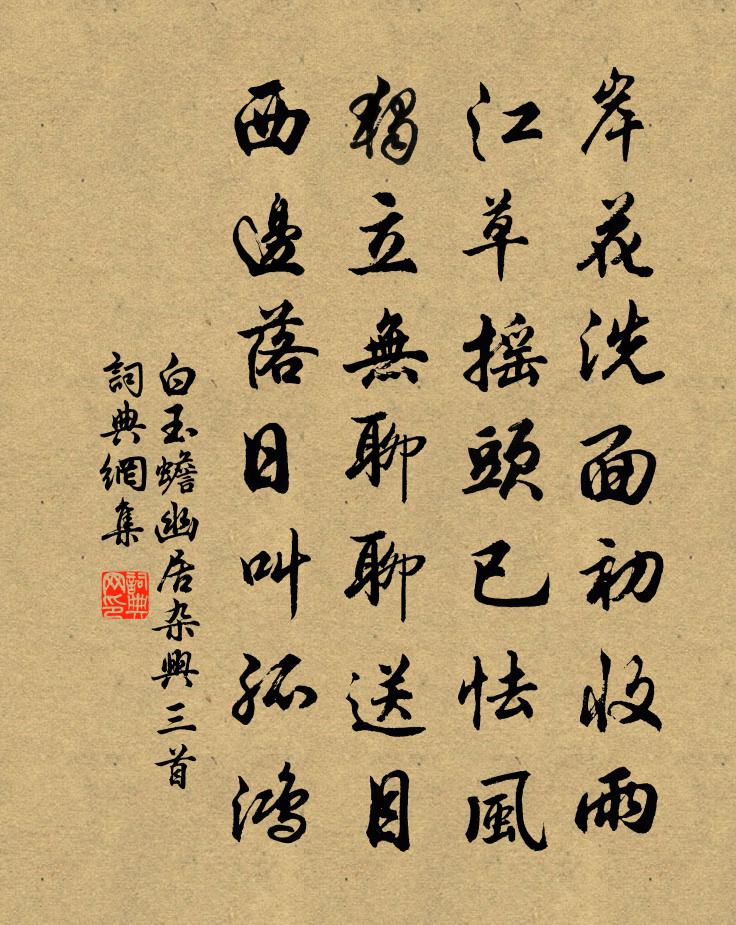 岸花洗面初收雨
江草摇頭已怯風
獨立無聊聊送目
西邊落日叫孤鴻
白玉蟾幽居杂興三首
詞典網集
詞典网印